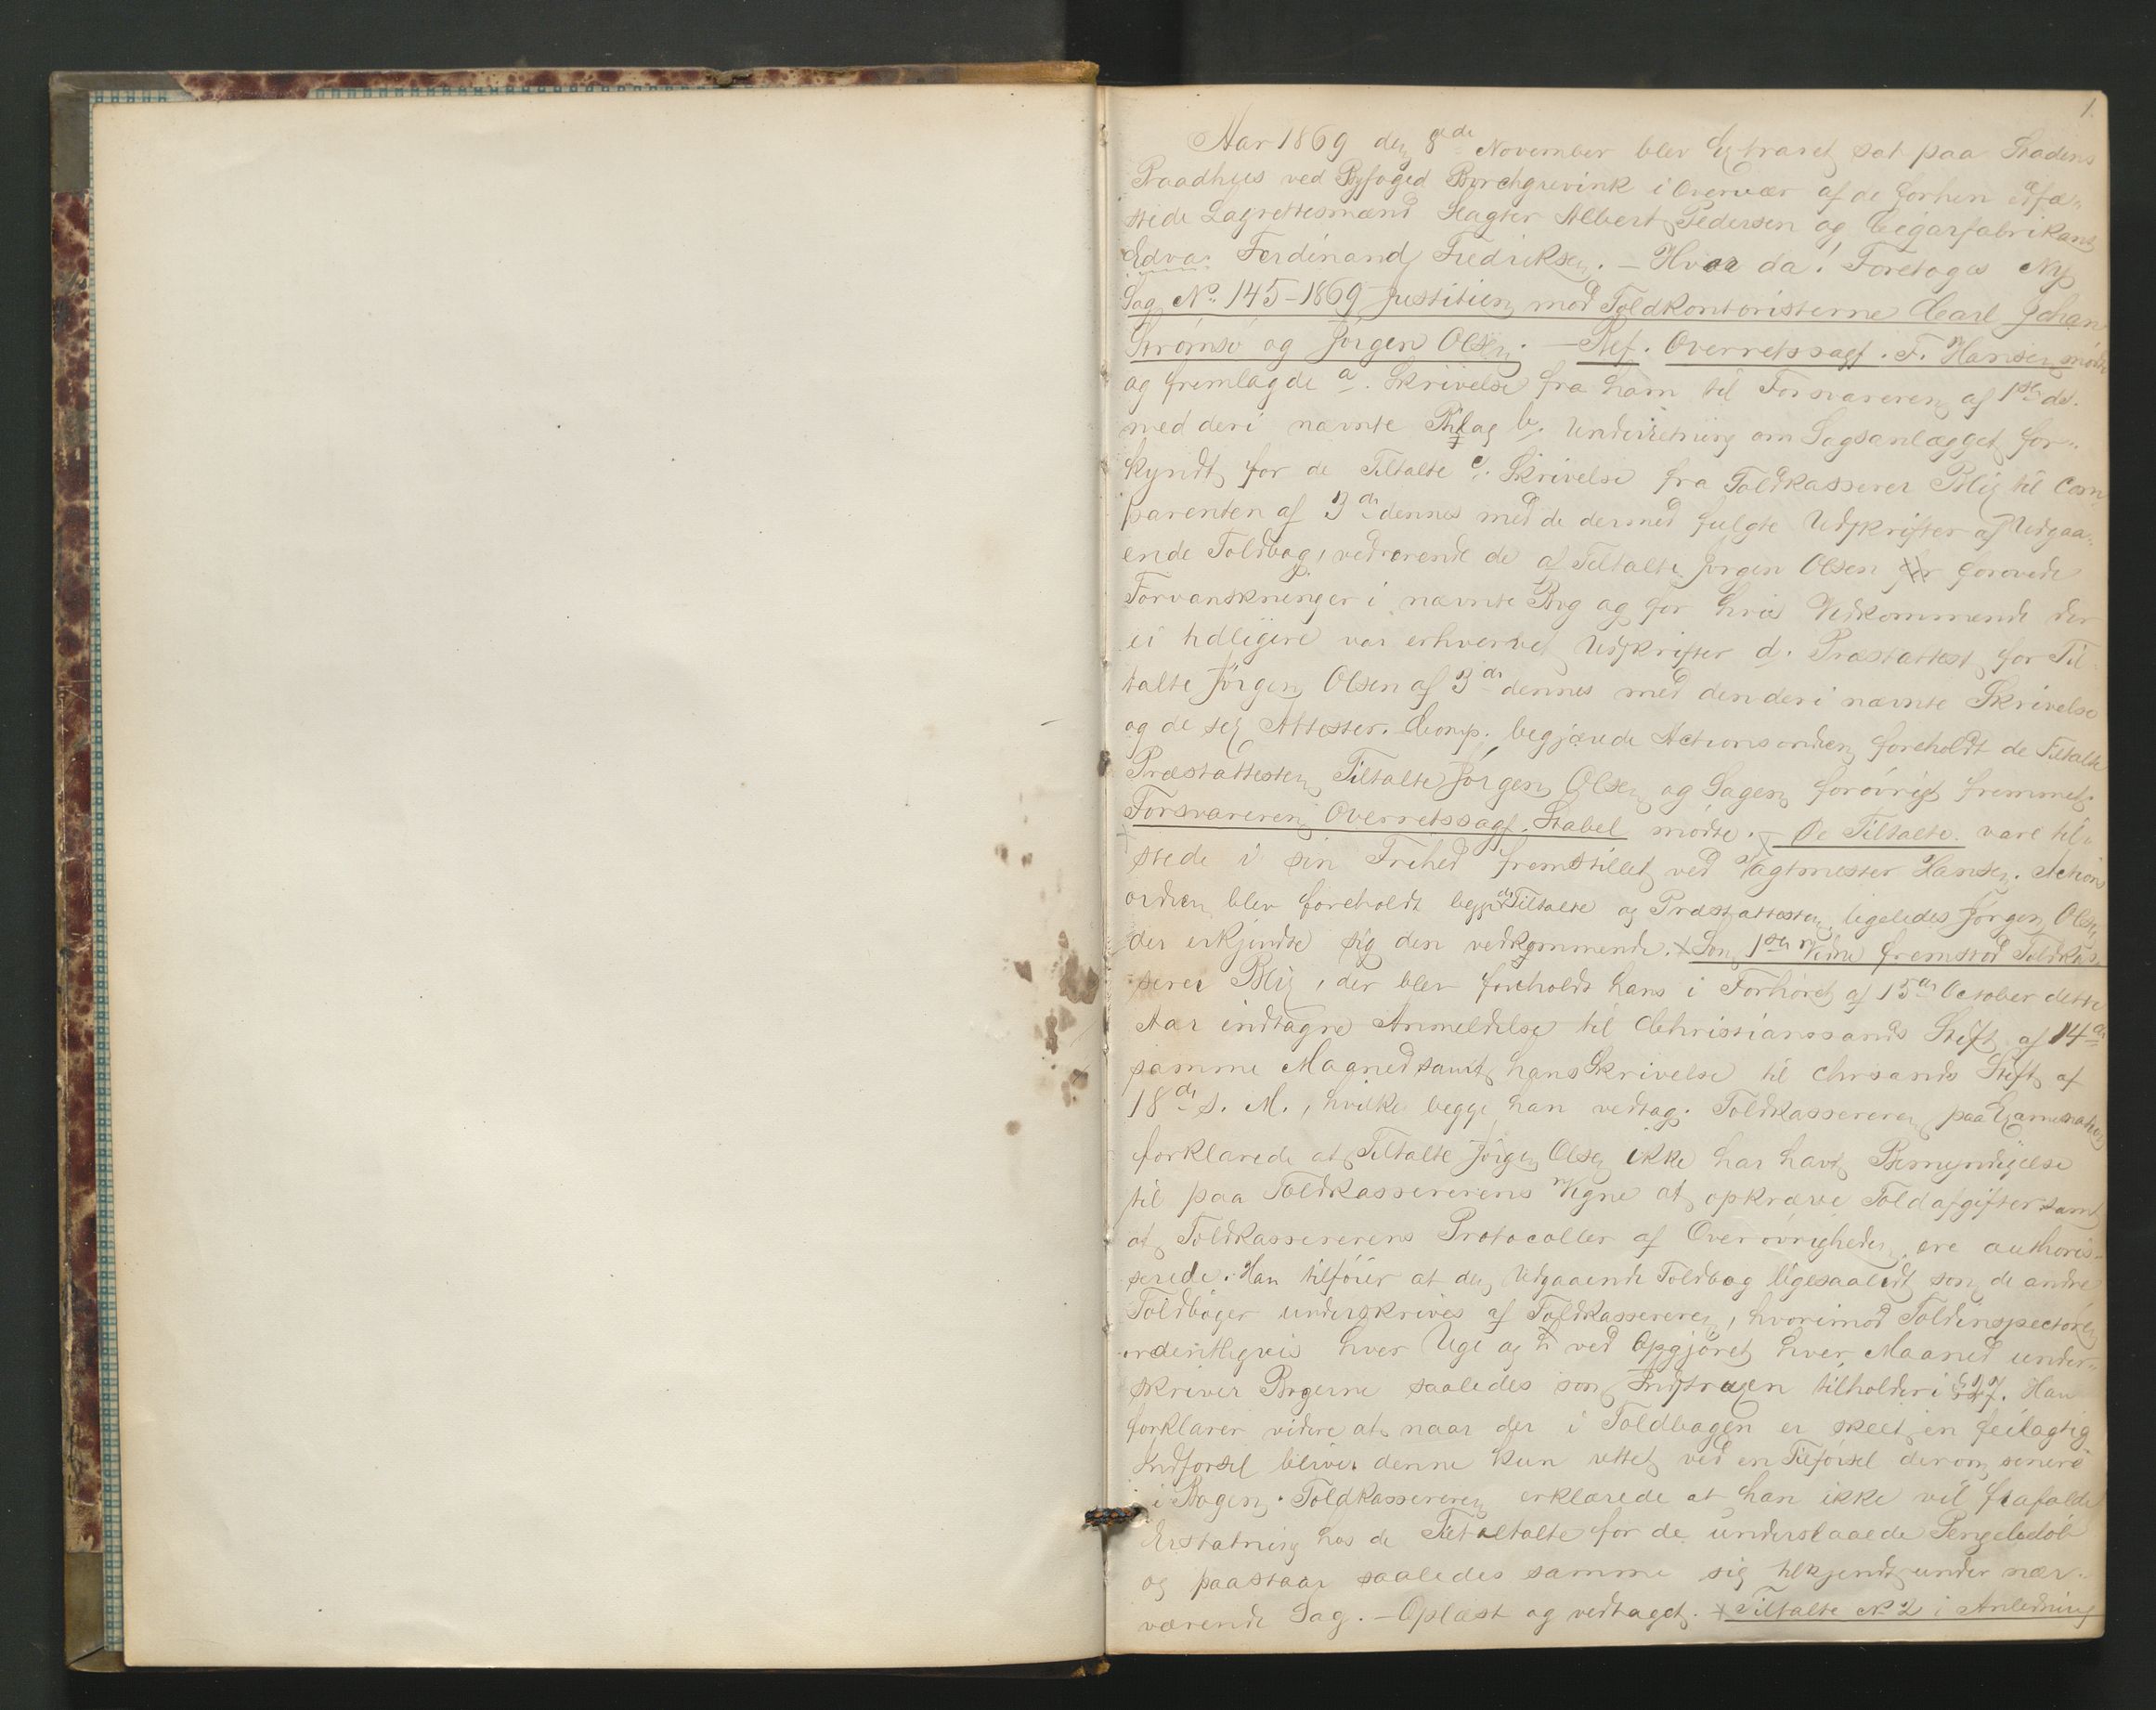 1.
Aar 1869 den 8de November blev Extraret sat paa Stadens
Raadhuus ved Byfoged Borchgrevink i Overvær af de forhen edfæ„
stede Lagrettesmænd Slagter Albert Pedersen og Cigarfabrikant
Edva. Ferdinand Fredriksen. – Hvor da! Foretoges Ny
Sag No. 145–1869 Justitien mod Toldkontoristerne Carl Johan
Strømsø og Jørgen Olsen. – Ref. Overretssagf. F. Hansen mødte
og fremlagde a. Skrivelse fra ham til Forsvareren af 1ste ds.
med deri nævnte Bilag b. Underretning om Sagsanlægget for„
kyndt for de Tiltalte c. Skrivelse fra Toldkasserer Blix til Com
parenten af 3die dennes med de dermed fulgte Udskrifter af Udgaa„
ende Toldbog, vedrørende de af Tiltalte Jørgen Olsen forøvede
Forvanskninger i nævnte Bog og for hvis Vedkommende der
ei tidligere var erhvervet Udskrifter d. Præstattest for Til
talte Jörgen Olsen af 3die dennes med den deri nævnte Skrivelse
og de sex Attester. Comp. begjærede Actionsordren foreholdt de Tiltalte
Præstattesten Tiltalte Jörgen Olsen og Sagen forövrigt fremmet.
Forsvareren Overretssagf. Stabel mödte. x De Tiltalte vare til„
stede i sin Frihed fremstillet ved Vagtmester Hansen. Actions
ordren blev foreholdt begge de Tiltalte og Præstattesten ligeledes Jörgen Olsen
der erkjendte sig den vedkommende. x Som 1ste Vidne fremstod Toldkas„
serer Blix, der blev foreholdt hans i Forhöret af 15de October dette
Aar indtagne Anmeldelse til Christianssands Stift af 14de
samme Maaned samt hans Skrivelse til Chrsands Stift af
18de s. M., hvilke begge han vedtog. Toldkassereren paa Examination
forklarede at Tiltalte Jörgen Olsen ikke har havt Bemyndigelse
til paa Toldkassererens Vegne at opkræve Toldafgifter samt
at Toldkassererens Protocoller af Overövrigheden ere authori„
serede. Han tilföier at den Udgaaende Toldbog ligesaavidt som de andre
Toldböger underskrives af Toldkassereren, hvorimod Toldinspectören
ordentligvis hver Uge og ved Opgjöret hver Maaned under„
skriver Bögerne saaledes som Instruxen tilholder i § 27. Han
forklarer videre at naar der i Toldbogen er skeet en feilagtig
Indförsel bliver denne kun rettet ved en Tilförsel derom senere
i Bogen. Toldkassereren erklærede at han ikke vil frafalde
Erstatning hos de Tiltalte for de underslaaede Pengebeløb
og paastaar saaledes samme sig tilkjendt under nær„
værende Sag. – Oplæst og vedtaget. x Tiltalte No 2 i Anledning